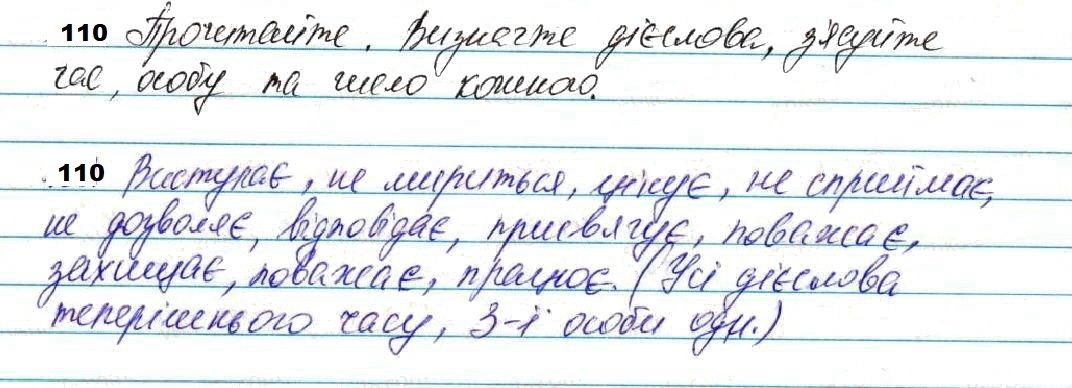 110 Прочитайте. Визначте дієслова, з'ясуйте
час, особу та число кожного.
110 Виступає, не мириться, цінує, не сприймає,
не дозволяє, відповідає, присвячує, поважає,
захищає, поважає, працює. (Усі дієслова
теперішнього часу, 3-ї особи одн.)